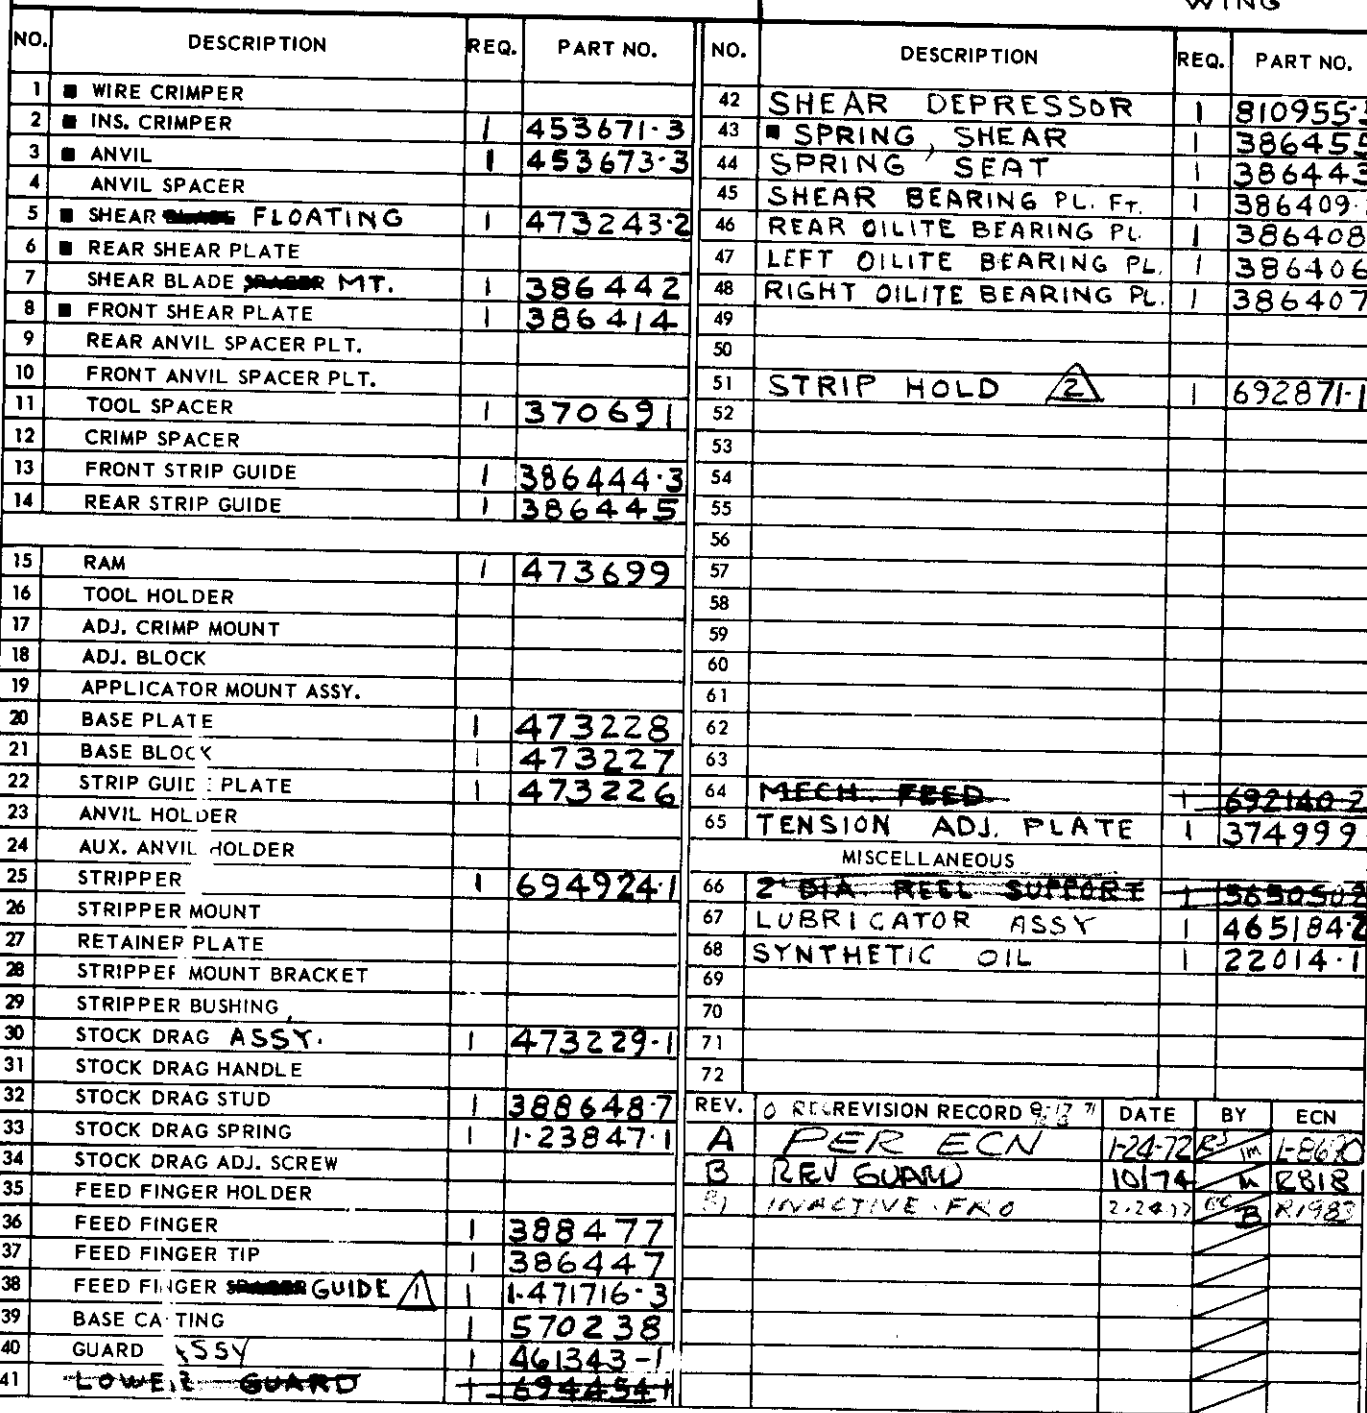 WING
NO. DESCRIPTION REQ. PART NO.
1 ■ WIRE CRIMPER
2 ■ INS. CRIMPER 1 453671-3
3 ■ ANVIL 1 453673-3
4 ANVIL SPACER
5 ■ SHEAR FLOATING 1 473243-2
6 ■ REAR SHEAR PLATE
7 SHEAR BLADE SPACER MT. 1 386442
8 ■ FRONT SHEAR PLATE 1 386414
9 REAR ANVIL SPACER PLT.
10 FRONT ANVIL SPACER PLT.
11 TOOL SPACER 1 370691
12 CRIMP SPACER
13 FRONT STRIP GUIDE 1 386444-3
14 REAR STRIP GUIDE 1 386445
15 RAM 1 473699
16 TOOL HOLDER
17 ADJ. CRIMP MOUNT
18 ADJ. BLOCK
19 APPLICATOR MOUNT ASSY.
20 BASE PLATE 1 473228
21 BASE BLOCK 1 473227
22 STRIP GUIDE PLATE 1 473226
23 ANVIL HOLDER
24 AUX. ANVIL HOLDER
25 STRIPPER 1 694924-1
26 STRIPPER MOUNT
27 RETAINER PLATE
28 STRIPPER MOUNT BRACKET
29 STRIPPER BUSHING
30 STOCK DRAG ASSY. 1 473229-1
31 STOCK DRAG HANDLE
32 STOCK DRAG STUD 1 388648-7
33 STOCK DRAG SPRING 1 1-23847-1
34 STOCK DRAG ADJ. SCREW
35 FEED FINGER HOLDER
36 FEED FINGER 1 388477
37 FEED FINGER TIP 1 386447
38 FEED FINGER SPACER GUIDE 1 1 1-471716-3
39 BASE CASTING 1 570238
40 GUARD ASSY 1 461343-1
41 LOWER GUARD 1 694454-1
NO. DESCRIPTION REQ. PART NO.
42 SHEAR DEPRESSOR 1 810955-
43 ■ SPRING, SHEAR 1 386455
44 SPRING SEAT 1 386443
45 SHEAR BEARING PL. FT. 1 386409-
46 REAR OILITE BEARING PL. 1 386408
47 LEFT OILITE BEARING PL. 1 386406
48 RIGHT OILITE BEARING PL. 1 386407
49
50
51 STRIP HOLD 2 1 692871-1
52
53
54
55
56
57
58
59
60
61
62
63
64 MECH. FEED 1 692140-2
65 TENSION ADJ. PLATE 1 374999
MISCELLANEOUS
66 2' DIA. REEL SUPPORT 1
67 LUBRICATOR ASSY 1 465184-2
68 SYNTHETIC OIL 1 22014-1
69
70
71
72
REV. REVISION RECORD DATE BY ECN
A PER ECN 1-24-72 L-8670
B REV GUARD 10/74 R818
B1 INACTIVE R1983